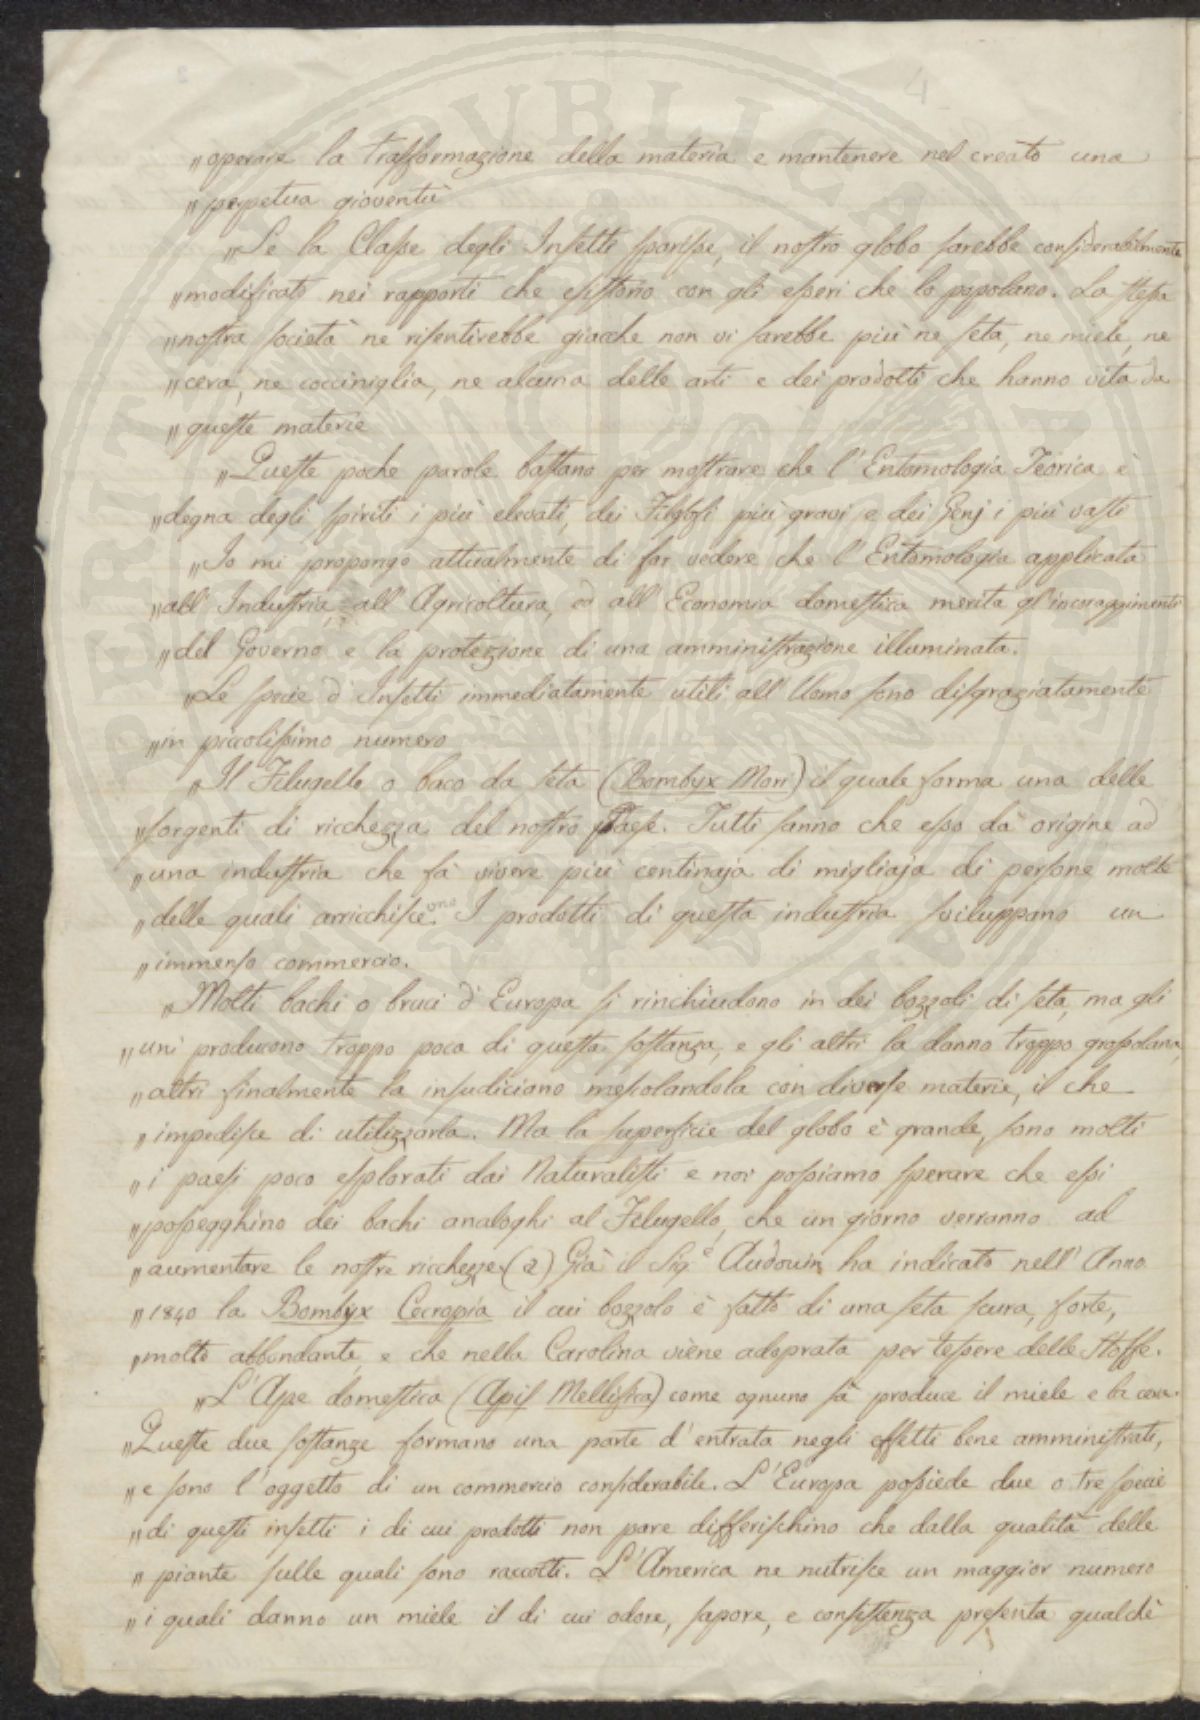 4
„operare la trasformazione della materia e mantenere nel creato una
„perpetua gioventù
„Se la Classe degli Insetti sparisse, il nostro globo sarebbe considerabilmente
„modificato nei rapporti che esistono con gli esseri che lo popolano. La stessa
„nostra società ne risentirebbe giacche non vi sarebbe più ne seta, ne miele, ne
„cera, ne cocciniglia, ne alcuna delle arti e dei prodotti che hanno vita da
„queste materie
„Queste poche parole bastano per mostrare che l'Entomologia Teorica è
„degna degli spiriti i più elevati, dei Filosofi più gravi e dei Genj i più vasti
„Io mi propongo attualmente di far vedere che l'Entomologia applicata
„all'Industria, all'Agricoltura, od all'Economia domestica merita gl'incoraggimenti
„del Governo e la protezione di una amministrazione illuminata.
„Le specie d'Insetti immediatamente utili all'Uomo sono disgraziatamente
„in piccolissimo numero
„Il Filugello o baco da seta (Bombyx Mori) il quale forma una delle
„sorgenti di ricchezza del nostro Paese. Tutti sanno che esso dà origine ad
„una industria che fà vivere più centinaja di migliaja di persone molte
„delle quali arricchisce.ono I prodotti di questa industria sviluppano un
„immenso commercio.
„Molti bachi o bruci d'Europa si rinchiudono in dei bozzoli di seta, ma gli
„uni producono troppo poca di questa sostanza, e gli altri la danno troppo grossolana,
„altri finalmente la insudiciano mescolandola con diverse materie, il che
„impedisce di utilizzarla. Ma la superficie del globo è grande, sono molti
„i paesi poco esplorati dai Naturalisti e noi possiamo sperare che essi
„possegghino dei bachi analoghi al Filugello, che un giorno verranno ad
„aumentare le nostre ricchezze (2) Già il Sig.e Audouin ha indicato nell'Anno
„1840 la Bombyx Cecropia il cui bozzolo è fatto di una seta scura, forte,
„molto abbondante, e che nella Carolina viene adoprata per tessere delle stoffe.
„L'Ape domestica (Apis Mellifica) come ognuno sà produce il miele e la cera.
„Queste due sostanze formano una parte d'entrata negli effetti bene amministrati,
„e sono l'oggetto di un commercio considerabile. L'Europa possiede due o tre specie
„di questi insetti i di cui prodotti non pare differischino che dalla qualità delle
„piante sulle quali sono raccolti. L'America ne nutrisce un maggior numero
„i quali danno un miele il di cui odore, sapore, e consistenza presenta qualchè